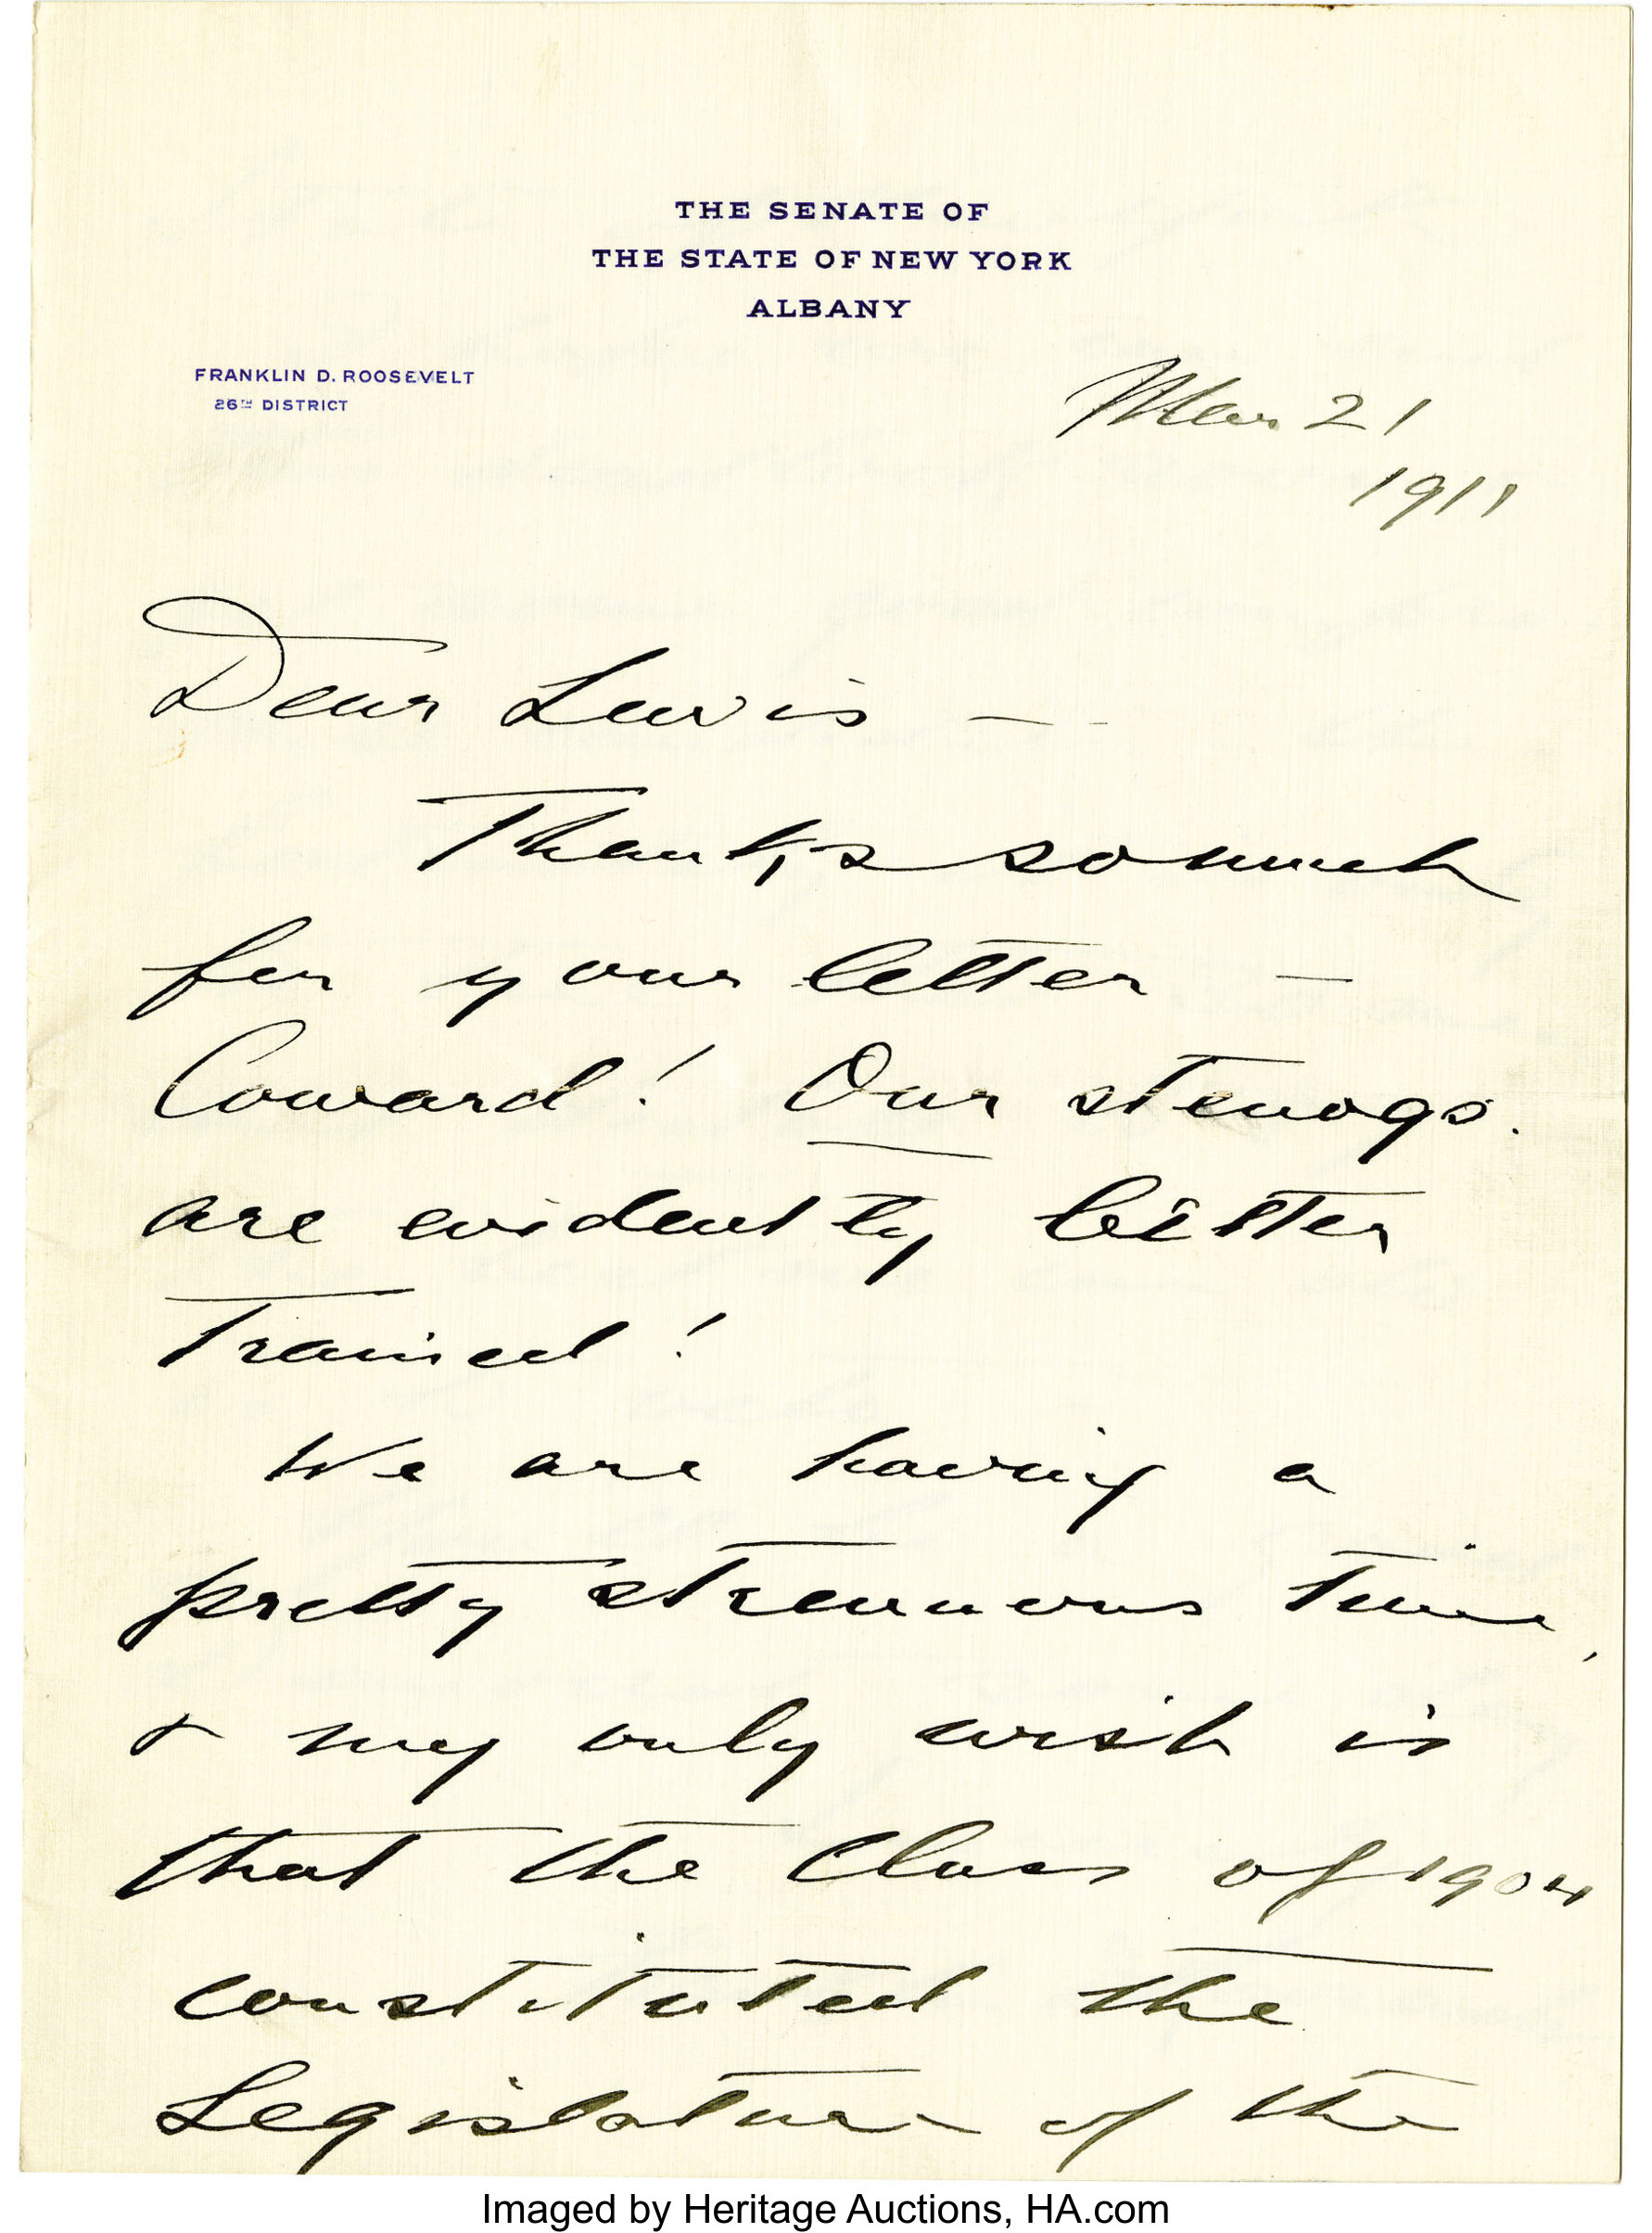 THE SENATE OF
THE STATE OF NEW YORK
ALBANY
FRANKLIN D. ROOSEVELT
26TH DISTRICT
Mar 21
1911
Dear Lewis —
Thanks so much
for your letter —
Coward! Our stenogs.
are evidently better
trained!
We are having a
pretty strenuous time,
& my only wish is
that the Class of 1904
constituted the
Legislature of the
Imaged by Heritage Auctions, HA.com